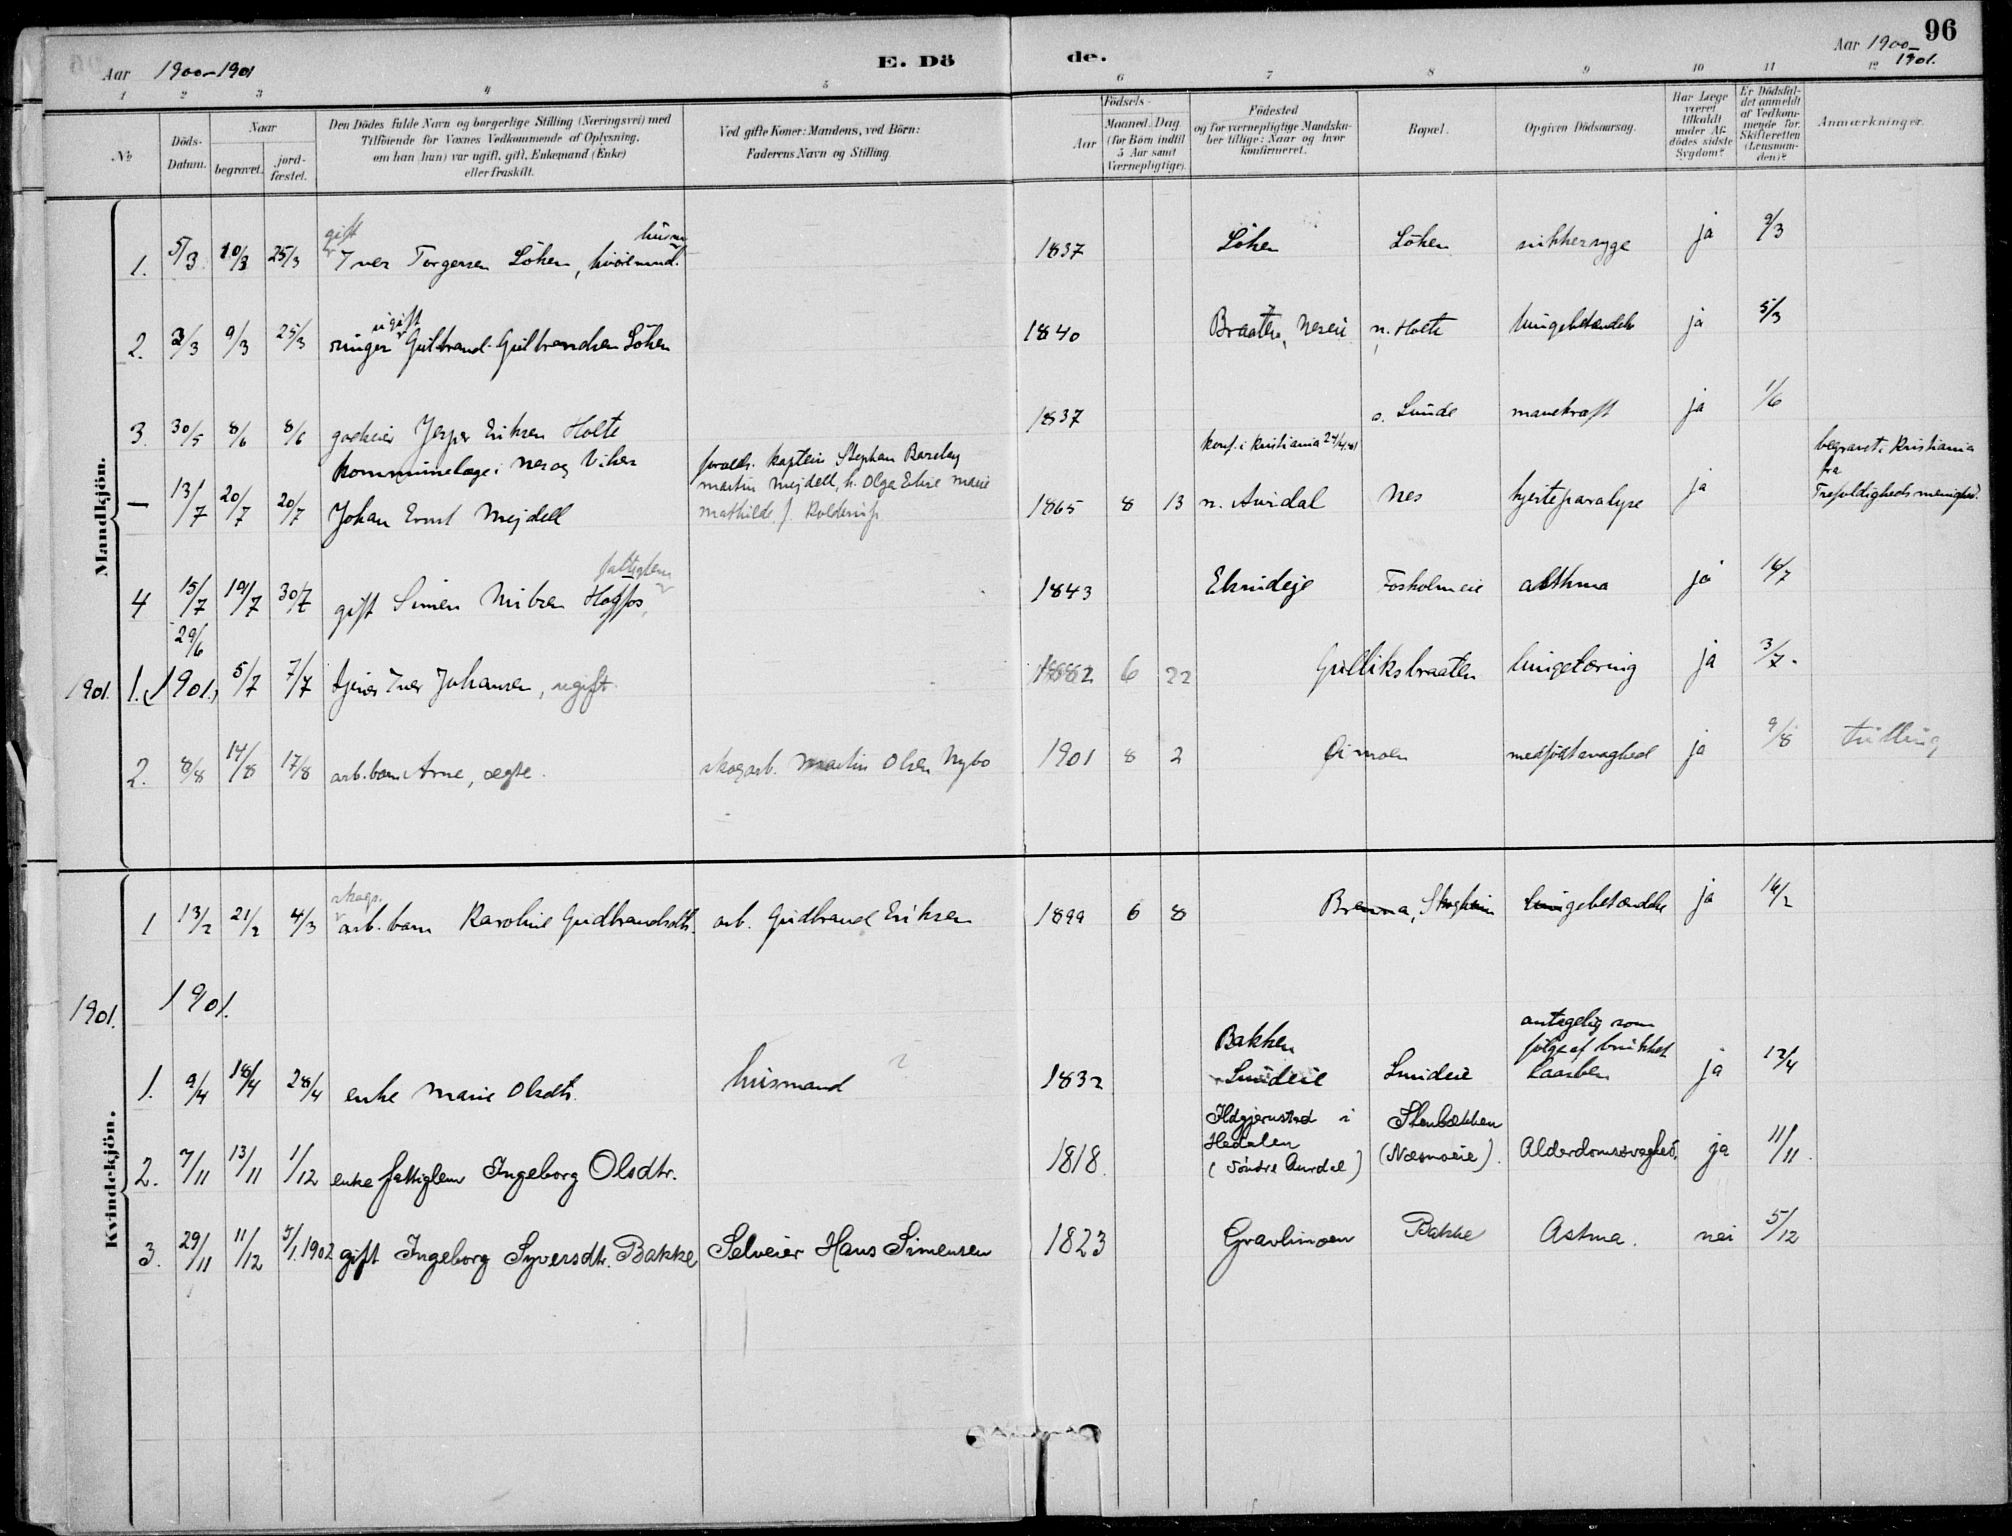 96
Aar 1900-1901
E. Dö
de.
Aar 1900-
1901.
1 2 3 4 5 6 7 8 9 10 11 12
No
Döds-
Datum.
Naar
begravet.
jord-
fæstet.
Den Dödes fulde Navn og borgerlige Stilling (Næringsvei) med
Tilföiende for Voxnes Vedkommende af Oplysning,
om han (hun) var ugift, gift, Enkemand (Enke)
eller fraskilt.
Ved gifte Koner: Mandens, ved Börn:
Faderens Navn og Stilling.
Födsels-
Aar
Maaned. Dag
(for Börn indtil
5 Aar samt
Værnepligtige).
Födested
og for værnepligtige Mandska-
ber tillige: Naar og hvor
konfirmeret.
Bopæl.
Opgiven Dödsaarsag.
Har Læge
været
tilkaldt
under Af-
dödes sidste
Sygdom?
Er Dödsfal-
det anmeldt
af Vedkom-
mende for
Skifteretten
(Lensman-
den)?
Anmærkninger.
Mandkjön.
gift
1. 5/3 10/3 25/3 Iver Torgersen Löken, 1837 Löken Löken sukkersyge ja 9/3
ugift
2. 2/3 9/3 25/3 Gulbrand Gulbrandsen Löken 1840 Braaten, Neseie n. Holte lungebetændelse ja 5/3
3. 30/5 8/6 8/6 Jesper Eriksen Holte 1837 ö. Lunde marvekræft ja 1/6
kommunelæge i Nes og Viker
– 13/7 20/7 20/7 Johan Ernst Mejdell
foreldr. kaptein Stephan Barclay
Martin Mejdell, h. Olga Elise Marie
Mathilde f.
konf. i Kristiania
1865 8 13 n. Aurdal Nes hjerteparalyse ja
begravet i Kristiania
fra
Trefoldigheds menighed.
fattiglem
4 15/7 19/7 30/7 gift Simen Hoffos, 1843 Elsrudeje Fosholmeie asthma ja 16/7
1901. 29/6
1. (1901) 5/7 7/7 tjener Iver Johansen, ugift 1882 6 22 Gulliksbraaten lungetæring ja 3/7.
2. 8/8 14/8 17/8 arb. barn Arne, ægte. skogarb. Martin Olsen Nybo 1901 8 2 Öimoen medfödt svaghed ja 9/8 tvilling
Kvindekjön.
skogs.
1 13/2 21/2 4/3 arb. barn Karoline Gudbrandsdtr. arb. Gudbrand Eriksen 1899 6 8 Brenna, Skogheim lungebetændelse ja 16/2
1901. 1901.
1. 9/4 18/4 28/4 enke Marie Olsdtr. husmand 1832
Bakken
Sundeie Sundeie
antagelig som
fölge af brukket
laarben ja 12/4
2. 7/11 13/11 1/12 enke fattiglem Ingeborg Olsdtr. 1818.
Ildgjernstad i
Hedalen
(Söndre Aurdal)
Stenbækken
(Næsmoeie). Alderdomssvaghed. ja 11/11.
3. 29/11 11/12 5/1.1902 gift Ingeborg Syversdtr. Bakke Selveier Hans Simensen 1823 Gravlimoen Bakke Astma. nei 5/12